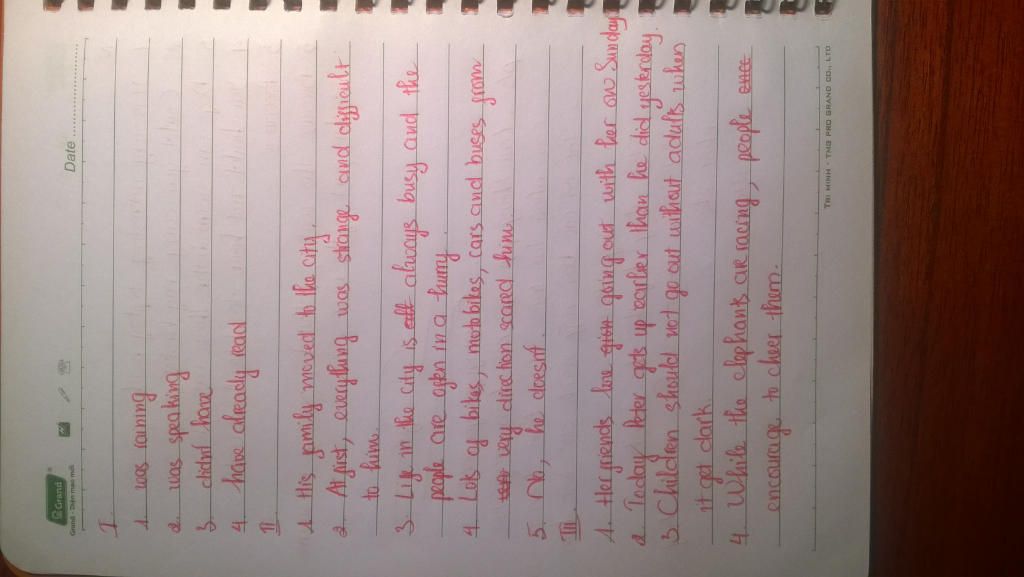 Grand
Grand - Diện mạo mới
Date
I.
1. was raining
2. was speaking
3. didn't have
4. have already read
II
1. His family moved to the city.
2. At first, everything was strange and difficult
to him.
3. Life in the city is always busy and the
people are often in a hurry
4. Lots of bikes, motobikes, cars and buses from
very direction scared him.
5. No, he doesn't.
III
1. Her friends love going out with her on Sunday
2. Today Peter gets up earlier than he did yesterday.
3. Children should not go out without adults when
it get dark.
4. While the elephants are racing, people
encourage to cheer them.
TRI MINH - TMG PRO GRAND CO., LTD